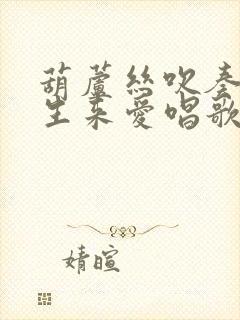 葫蘆絲吹奏
生来愛唱歌
婧暄